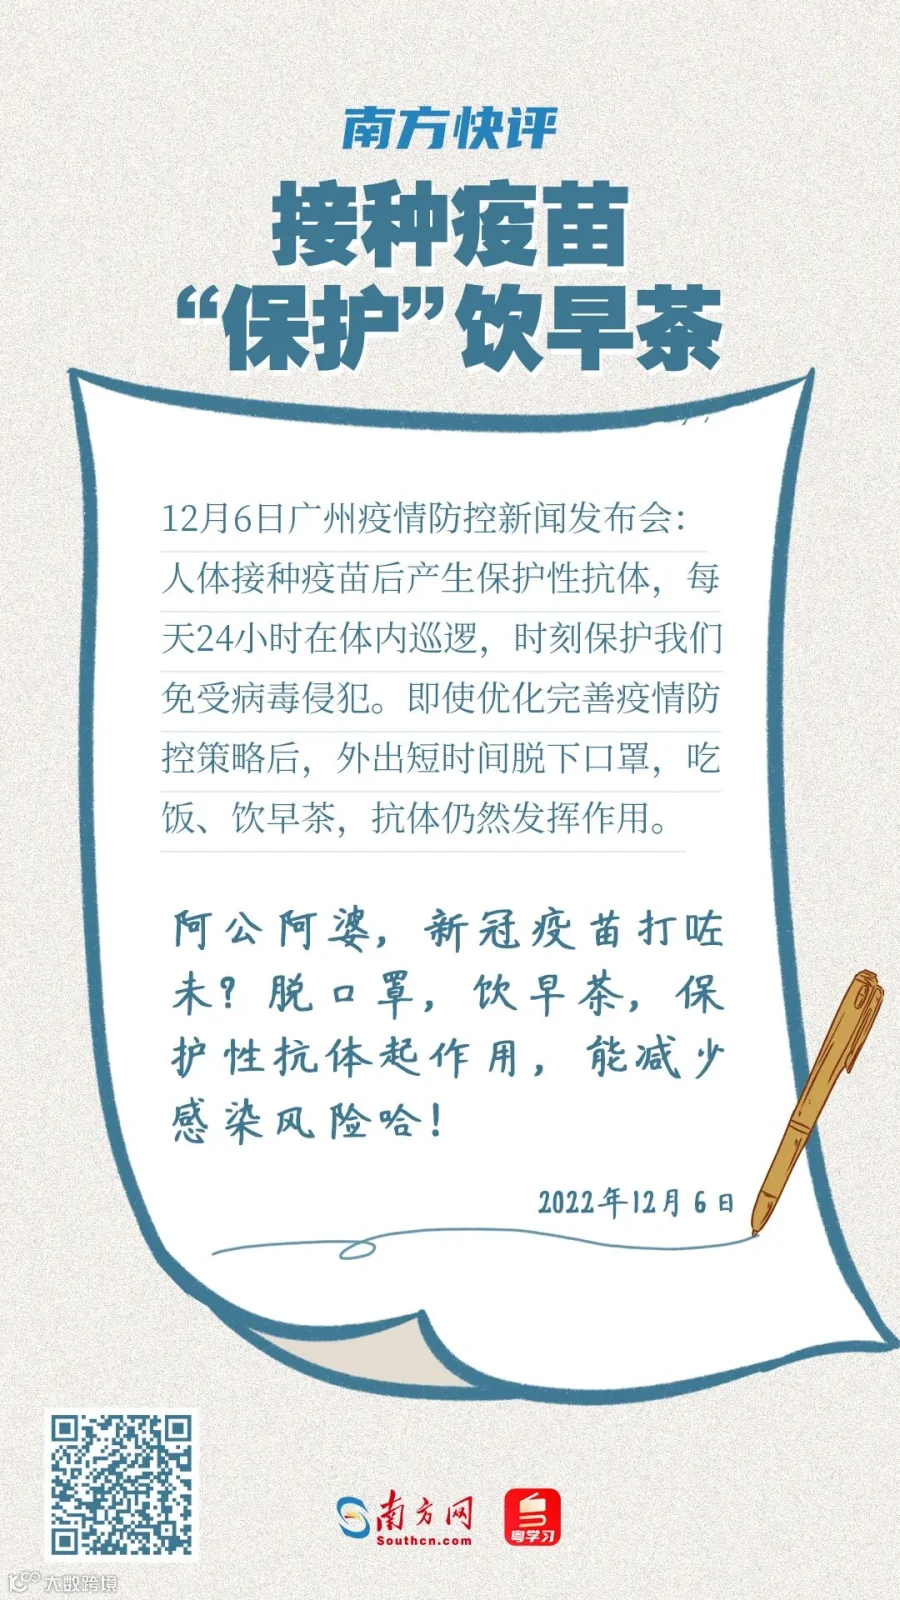 南方快评
接种疫苗
“保护”饮早茶
12月6日广州疫情防控新闻发布会：
人体接种疫苗后产生保护性抗体，每
天24小时在体内巡逻，时刻保护我们
免受病毒侵犯。即使优化完善疫情防
控策略后，外出短时间脱下口罩，吃
饭、饮早茶，抗体仍然发挥作用。
阿公阿婆，新冠疫苗打咗
未？脱口罩，饮早茶，保
护性抗体起作用，能减少
感染风险哈！
2022年12月6日
南方网
Southcn.com
粤学习
大数跨境